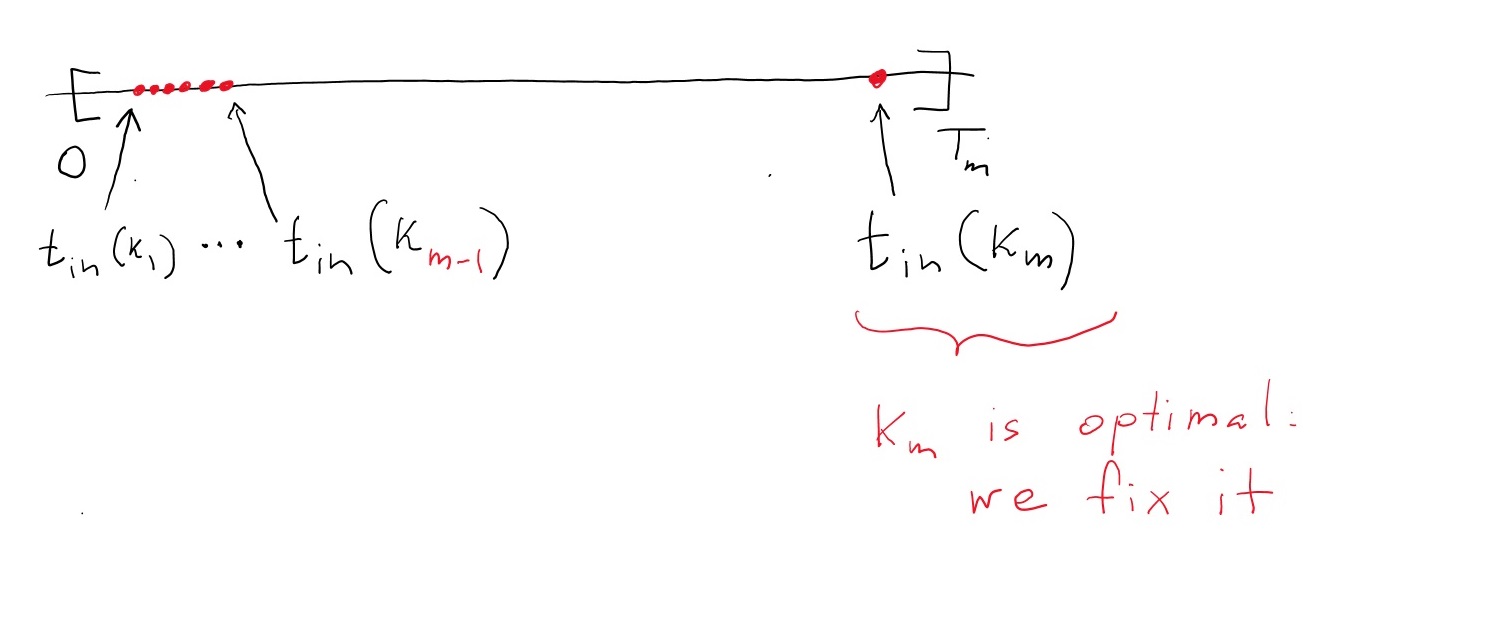 0
T_m
t_in(k_1) ... t_in(k_{m-1})
t_in(k_m)
k_m is optimal:
we fix it